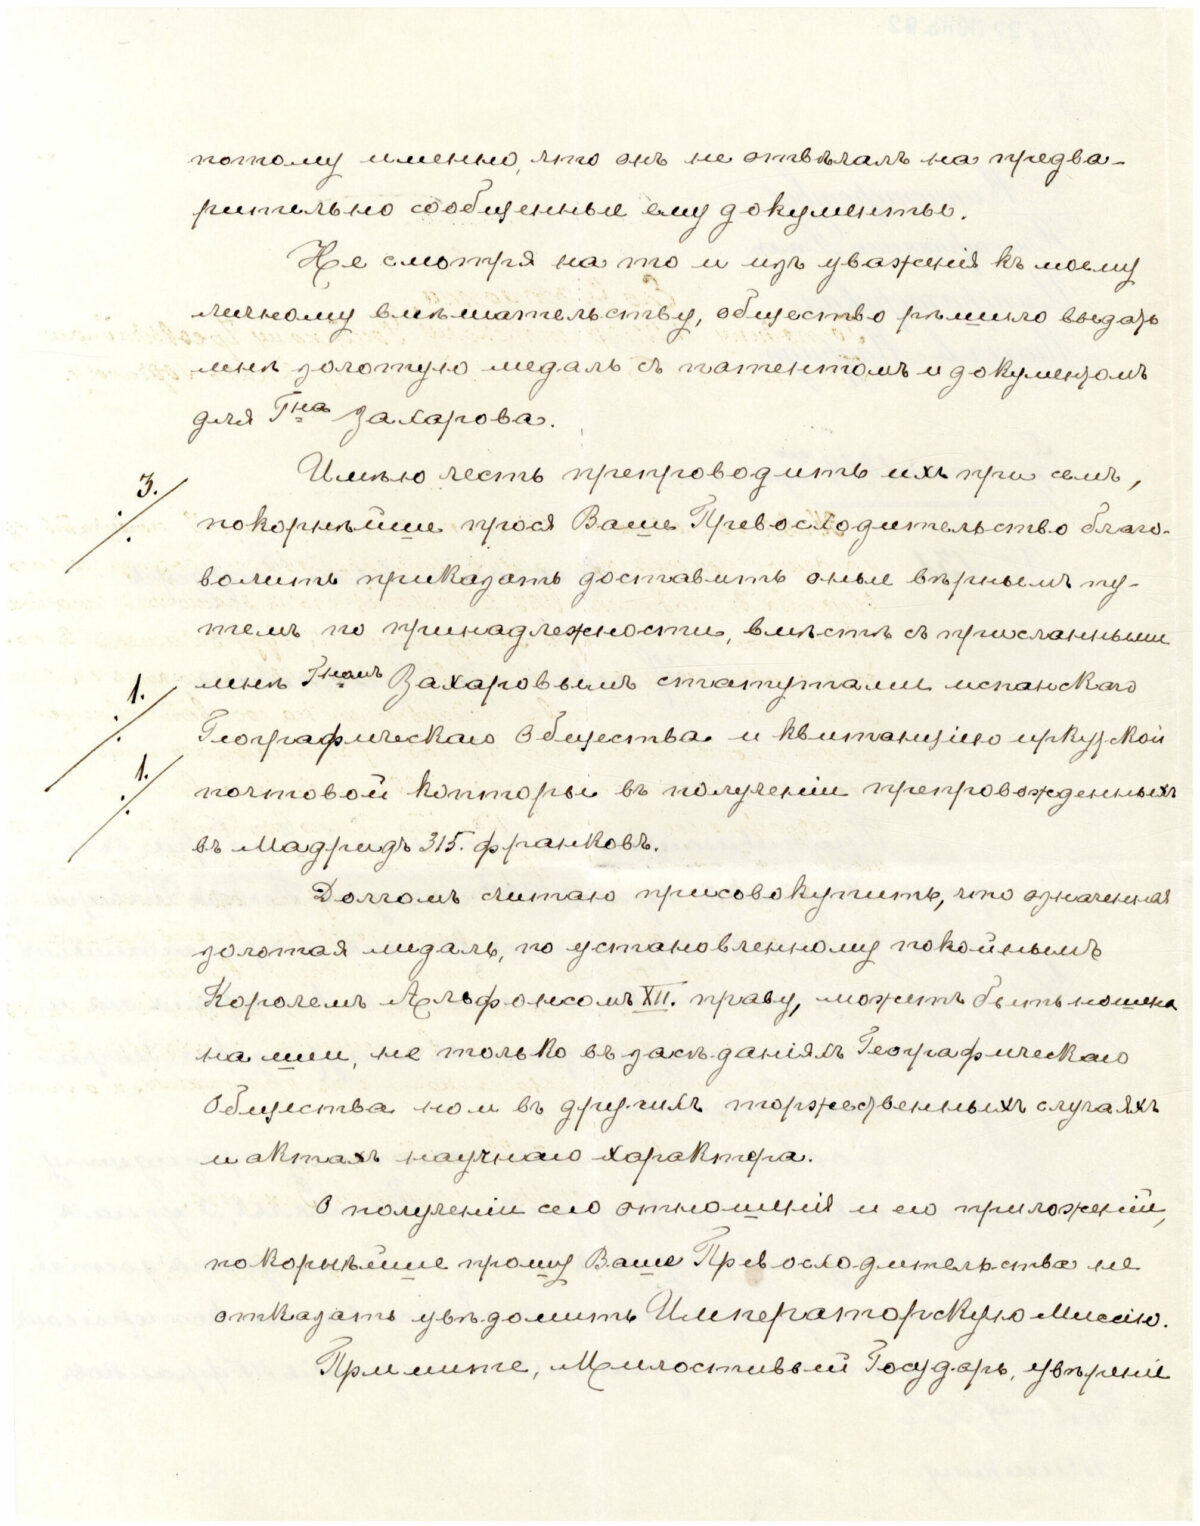 потому именно, что онъ не отвѣчалъ на предва-
рительно сообщенные ему документы.
Не смотря на то и изъ уваженія къ моему
личному вмѣшательству, общество рѣшило выдать
мнѣ золотую медаль съ патентомъ и документомъ
для Гна Захарова.
Имѣю честь препроводить ихъ при семъ,
3.
покорнѣйше прося Ваше Превосходительство благо-
волить приказать доставить оные вѣрнымъ пу-
темъ по принадлежности, вмѣстѣ съ присланными
1.
мнѣ Гномъ Захаровымъ статутами испанскаго
Географическаго Общества и квитанціею иркутской
1.
почтовой конторы въ полученіи препровожденныхъ
въ Мадридъ 315. франковъ.
Долгомъ считаю присовокупить, что означенная
золотая медаль, по установленному покойнымъ
Королемъ Альфонсомъ XII. праву, можетъ быть ношена
на шеи, не только въ засѣданіяхъ Географическаго
Общества но и въ другихъ торжественныхъ случаяхъ
и актахъ научнаго характера.
О полученіи сего отношенія и его приложеній,
покорнѣйше прошу Ваше Превосходительства не
отказать увѣдомить Императорскую Миссію.
Примите, Милостивый Государь, увѣреніе